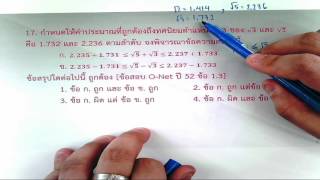 √2 = 1.414 , √5 = 2.236
√3 = 1.732
17. กำหนดให้ค่าประมาณที่ถูกต้องถึงทศนิยมตำแหน่งที่ 3 ของ √3 และ √5
คือ 1.732 และ 2.236 ตามลำดับ จงพิจารณาข้อความ
ก. 2.235 + 1.731 ≤ √5 + √3 ≤ 2.237 + 1.733
ข. 2.235 − 1.731 ≤ √5 − √3 ≤ 2.237 − 1.733
ข้อสรุปใดต่อไปนี้ ถูกต้อง [ข้อสอบ O-Net ปี 52 ข้อ 1.3]
1. ข้อ ก. ถูก และ ข้อ ข. ถูก 2. ข้อ ก. ถูก แต่ข้อ
3. ข้อ ก. ผิด แต่ ข้อ ข. ถูก 4. ข้อ ก. ผิด และ ข้อ